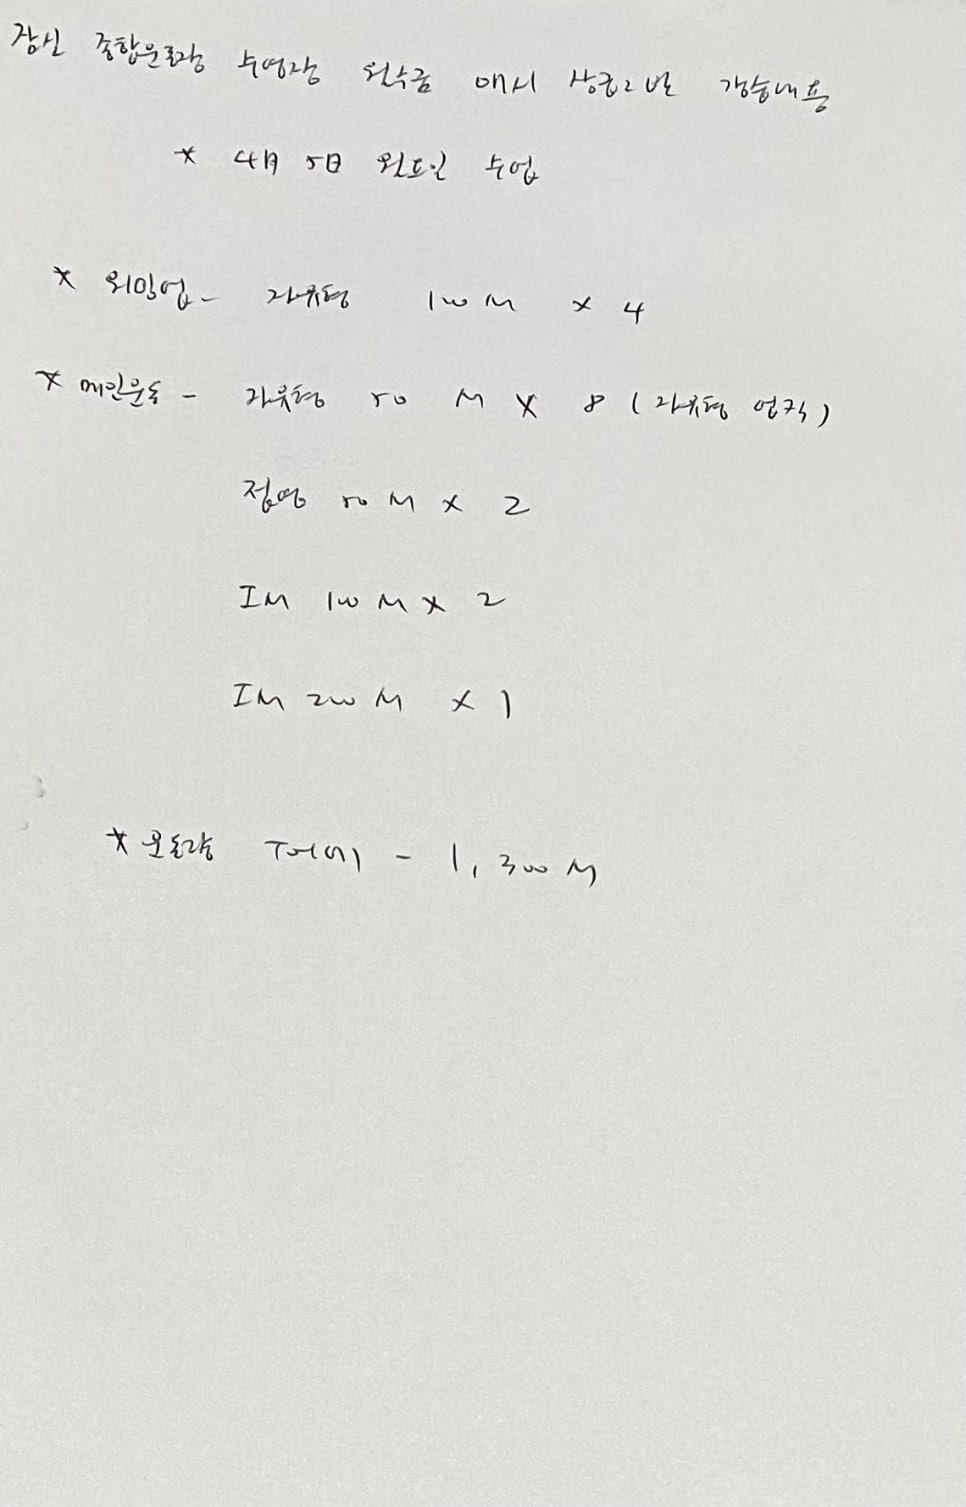 잠실 종합운동장 수영장 월수금 애시 상급2반 강습내용
* 4月 5日 월요일 수업
* 워밍업 - 자유형 100 M × 4
* 메인운동 - 자유형 50 M × 8 (자유형 언직)
접영 50 M × 2
IM 100 M × 2
IM 200 M × 1
* 운동량 T어에 - 1,300 M